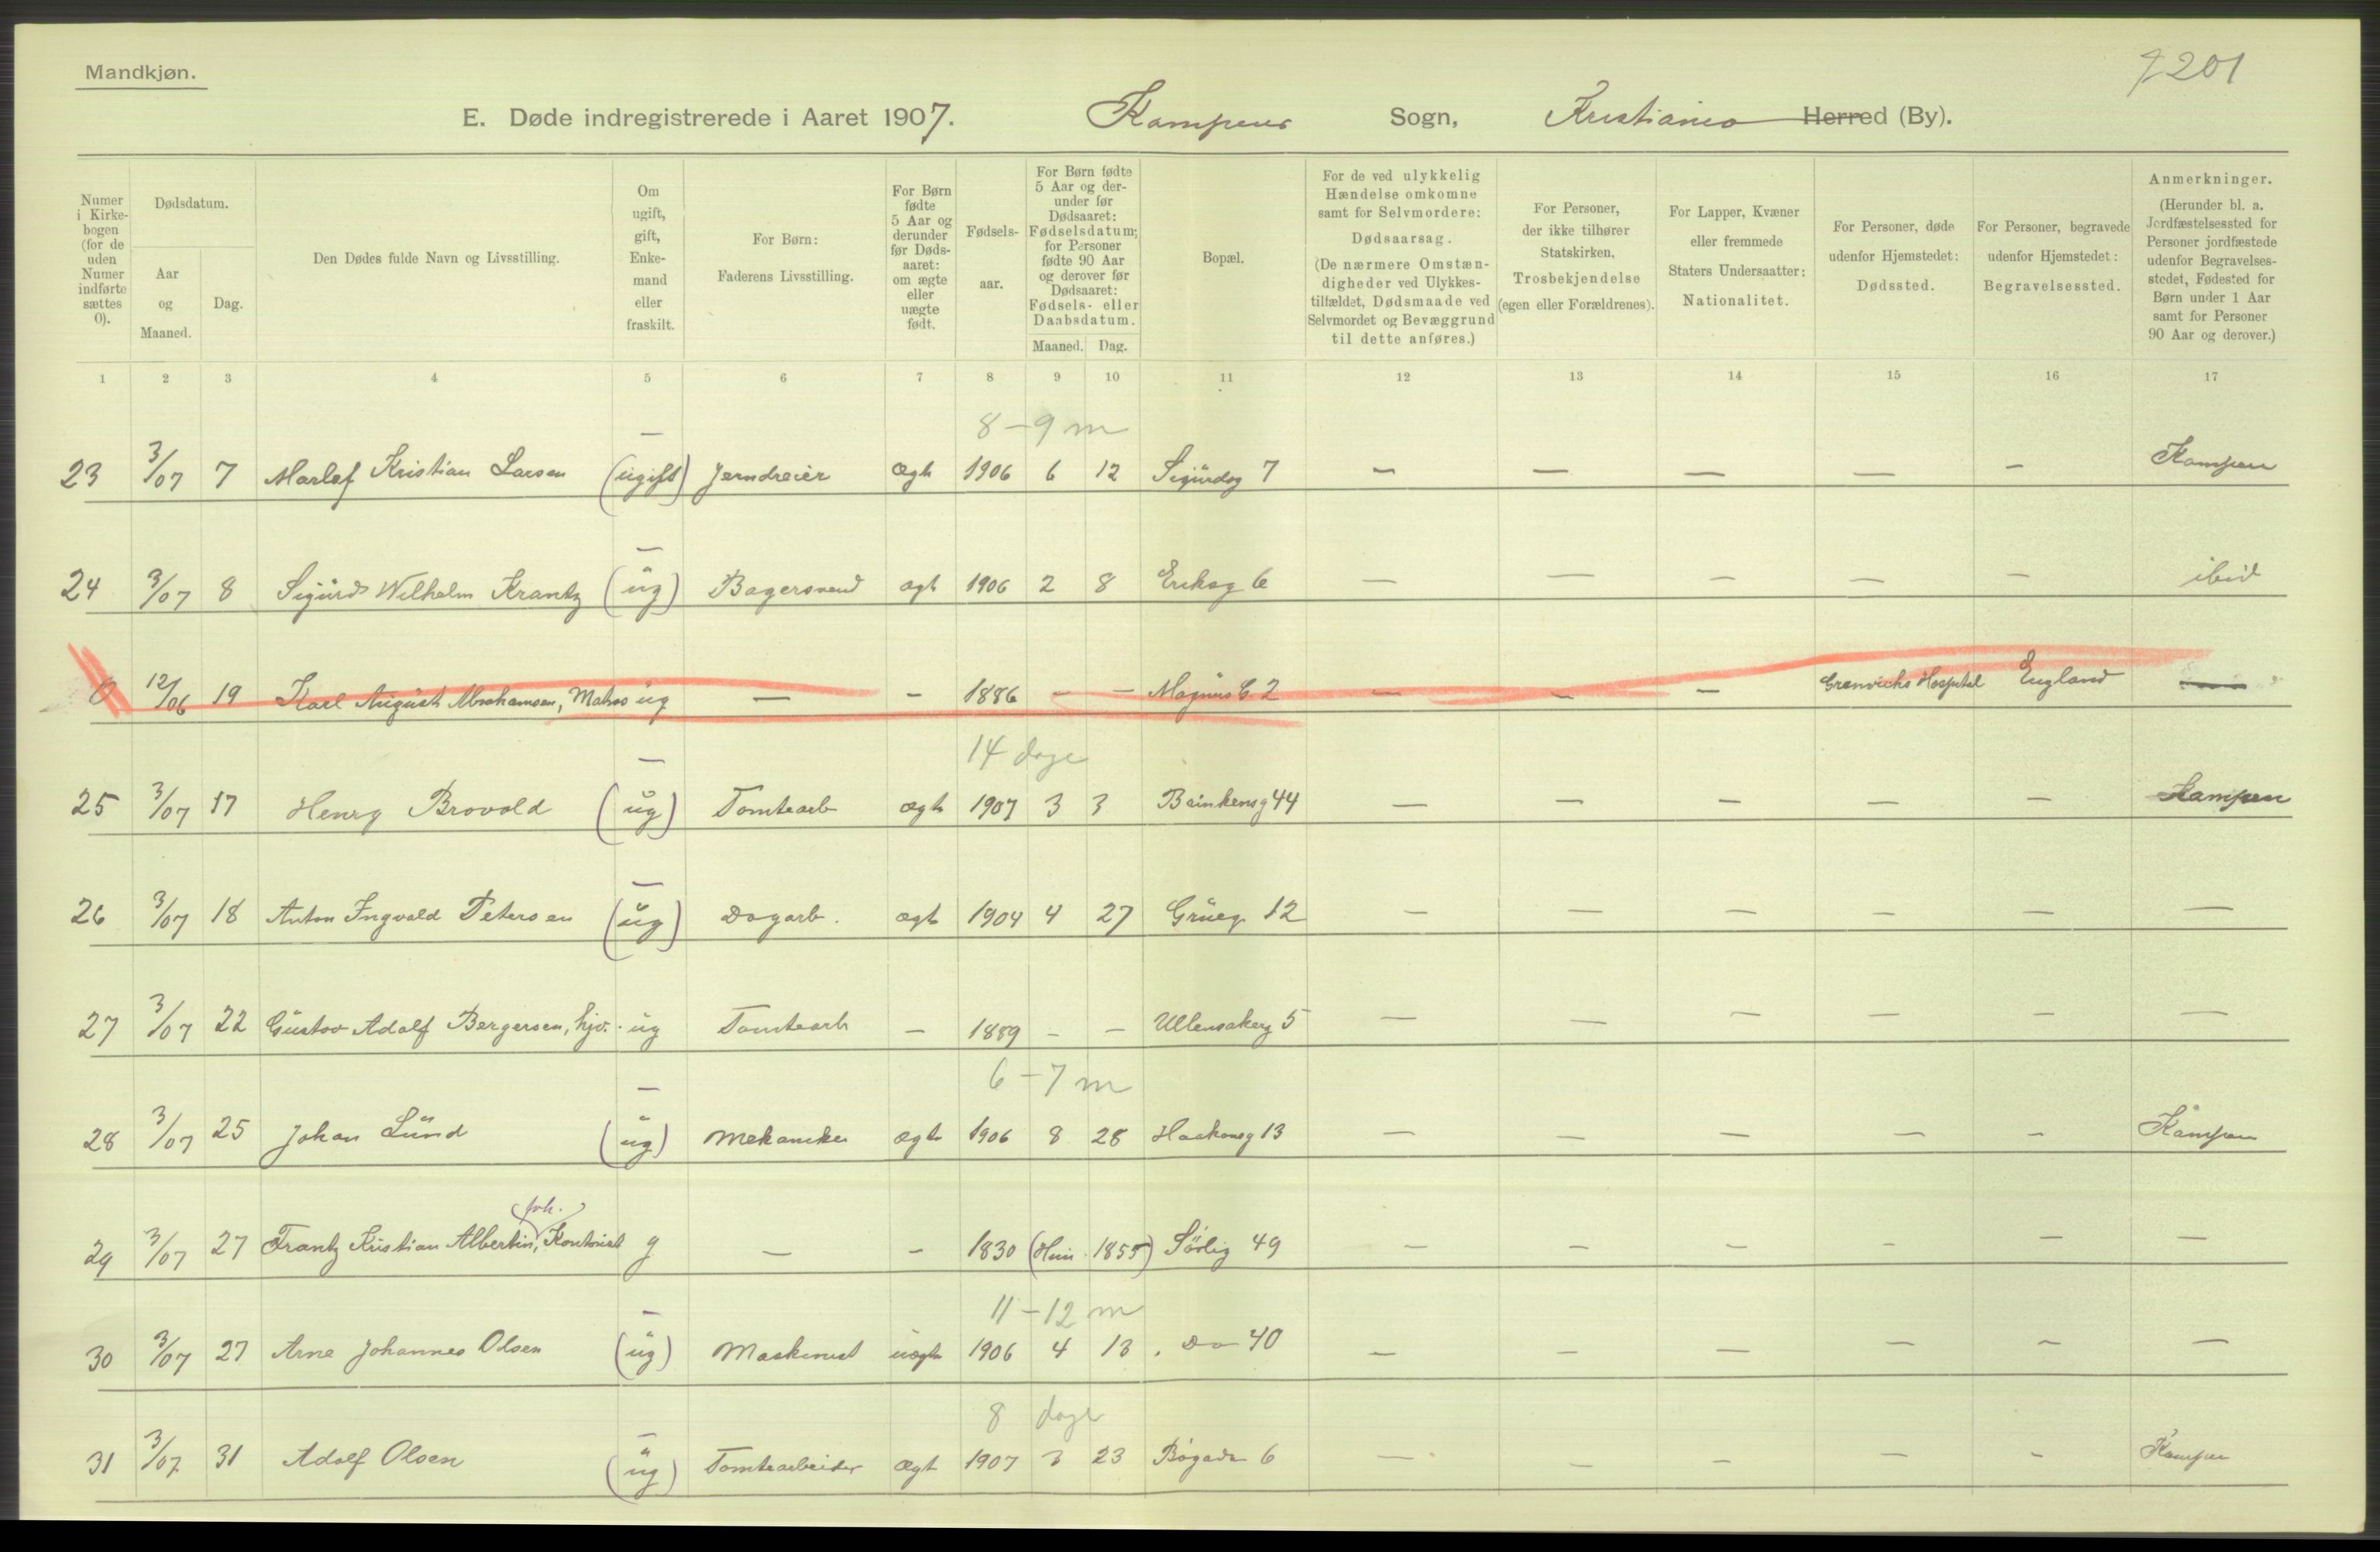 Mandkjøn.
7201
E. Døde indregistrerede i Aaret 1907. Kampens Sogn, Kristiania Herred (By).
Numer i Kirkebogen (for de uden Numer indførte sættes 0).
Dødsdatum.
Aar og Maaned.
Dag.
Den Dødes fulde Navn og Livsstilling.
Om ugift, gift, Enkemand eller fraskilt.
For Børn: Faderens Livsstilling.
For Børn fødte 5 Aar og derunder før Dødsaaret: om ægte eller uægte født.
Fødselsaar.
For Børn fødte 5 Aar og derunder før Dødsaaret: Fødselsdatum; for Personer fødte 90 Aar og derover før Dødsaaret: Fødsels- eller Daabsdatum.
Maaned. Dag.
Bopæl.
For de ved ulykkelig Hændelse omkomne samt for Selvmordere: Dødsaarsag. (De nærmere Omstændigheder ved Ulykkestilfældet, Dødsmaade ved Selvmordet og Bevæggrund til dette anføres.)
For Personer, der ikke tilhører Statskirken, Trosbekjendelse (egen eller Forældrenes).
For Lapper, Kvæner eller fremmede Staters Undersaatter: Nationalitet.
For Personer, døde udenfor Hjemstedet: Dødssted.
For Personer, begravede udenfor Hjemstedet: Begravelsessted.
Anmerkninger. (Herunder bl. a. Jordfæstelsessted for Personer jordfæstede udenfor Begravelsesstedet, Fødested for Børn under 1 Aar samt for Personer 90 Aar og derover.)
1 2 3 4 5 6 7 8 9 10 11 12 13 14 15 16 17
8-9 m
23 3/07 7 Marlof Kristian Larsen (ugift) Jerndreier ægte 1906 6 12 Sigurdsg 7 — — — — — Kampen
24 3/07 8 Sigurd Wilhelm Krantz (ug) Bagersvend ægt 1906 2 8 Eriksg 6 — — — — — ibid
0 12/06 19 Karl August Abrahamsen, Matros ug — — 1886 — — Magnus G 2 — — — Grenwichs Hospital England —
14 dage
25 3/07 17 Henry Brovold (ug) Tomtearb ægte 1907 3 3 Brinkensg 44 — — — — — Kampen
26 3/07 18 Anton Ingvald Petersen (ug) Dagarb. ægt 1904 4 27 Grüeg 12 — — — — — —
27 3/07 22 Gustav Adolf Bergersen, hjv. ug Tomtearb — 1889 — — Ullensakerg 5 — — — — — —
6-7 m
28 3/07 25 Johan Lund (ug) Mekaniker ægte 1906 8 28 Haakonsg 13 — — — — — Kampen
29 3/07 27 Frantz Kristian Albertin, Kontorist g — — 1830 (Hun 1855) Sørlig 49 — — — — — —
11-12 m
30 3/07 27 Arne Johannes Olsen (ug) Maskinist uægte 1906 4 13 Do 40 — — — — — —
8 dage
31 3/07 31 Adolf Olsen (ug) Tomtearbeider ægt 1907 3 23 Bøgade 6 — — — — — Kampen